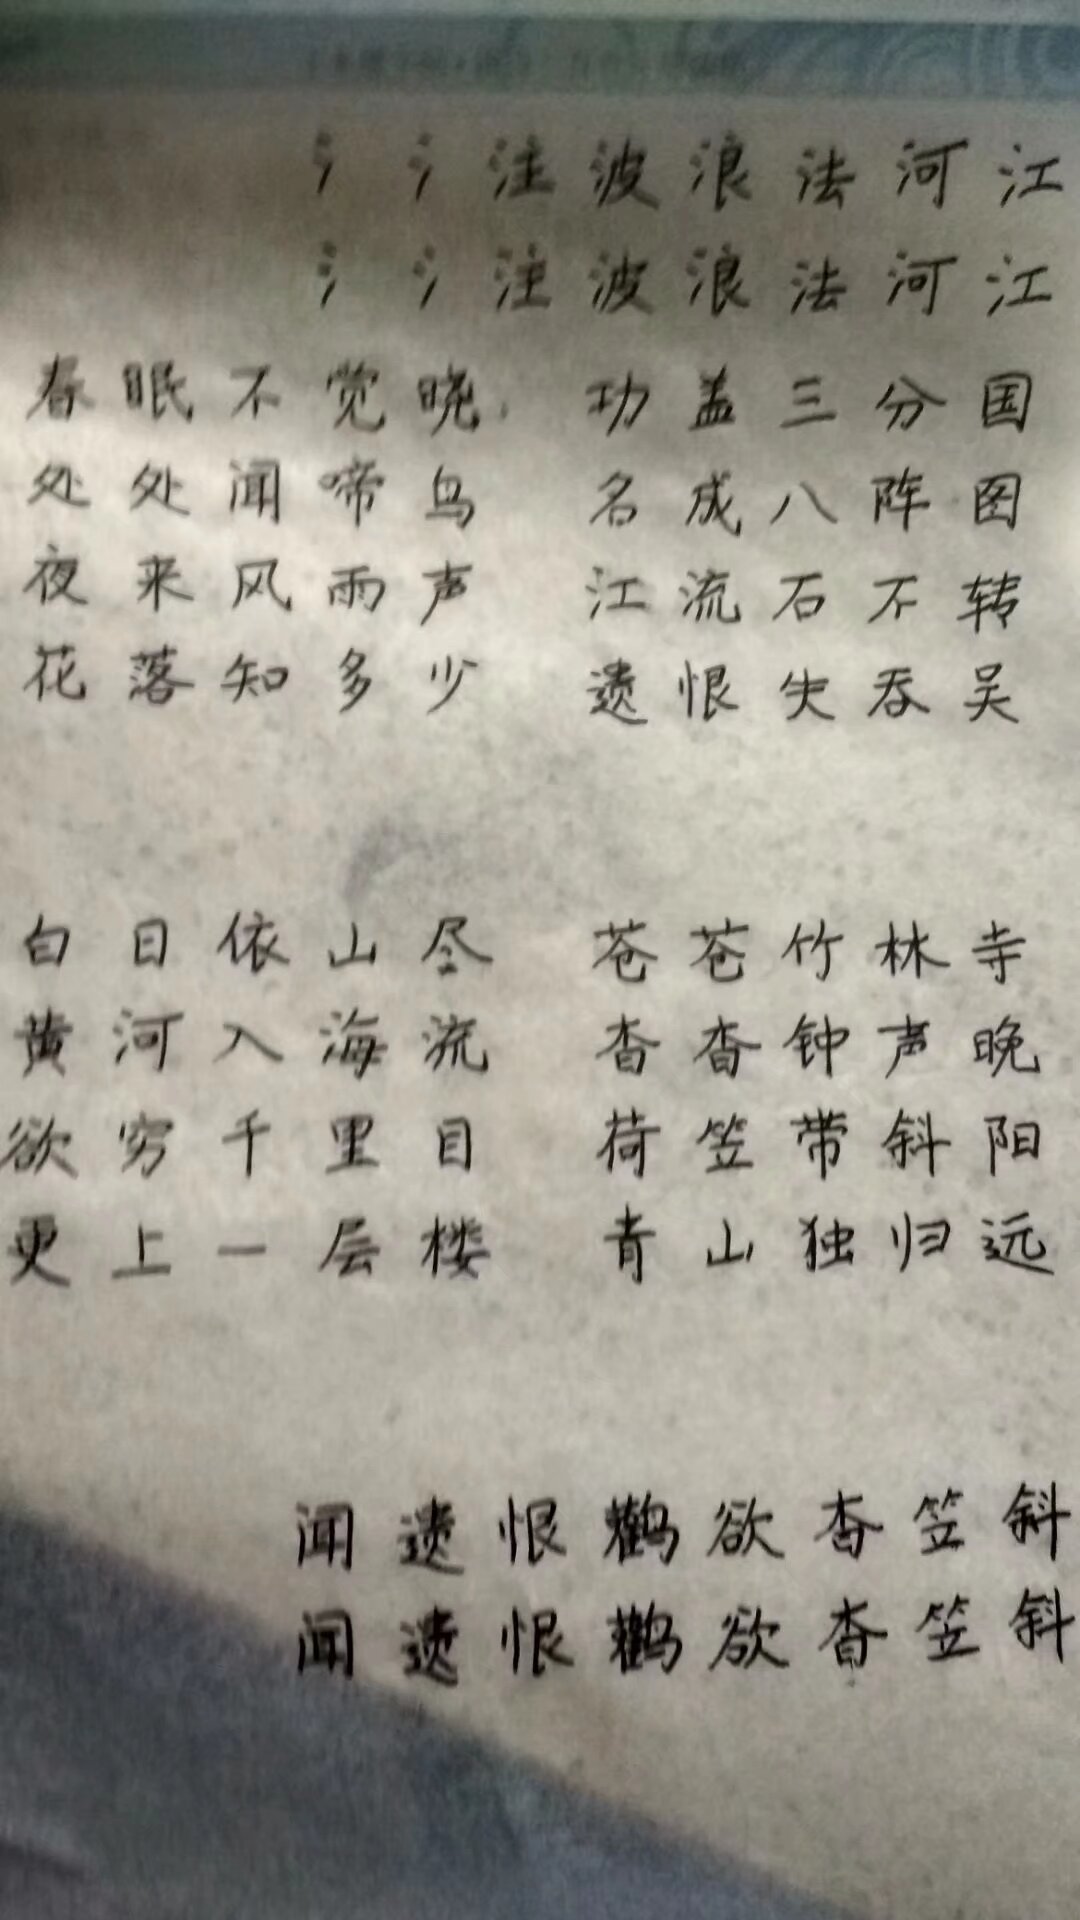 氵 氵 注 波 浪 法 河 江
氵 氵 注 波 浪 法 河 江
春 眠 不 觉 晓
处 处 闻 啼 鸟
夜 来 风 雨 声
花 落 知 多 少
功 盖 三 分 国
名 成 八 阵 图
江 流 石 不 转
遗 恨 失 吞 吴
白 日 依 山 尽
黄 河 入 海 流
欲 穷 千 里 目
更 上 一 层 楼
苍 苍 竹 林 寺
杳 杳 钟 声 晚
荷 笠 带 斜 阳
青 山 独 归 远
闻 遗 恨 鹳 欲 杳 笠 斜
闻 遗 恨 鹳 欲 杳 笠 斜